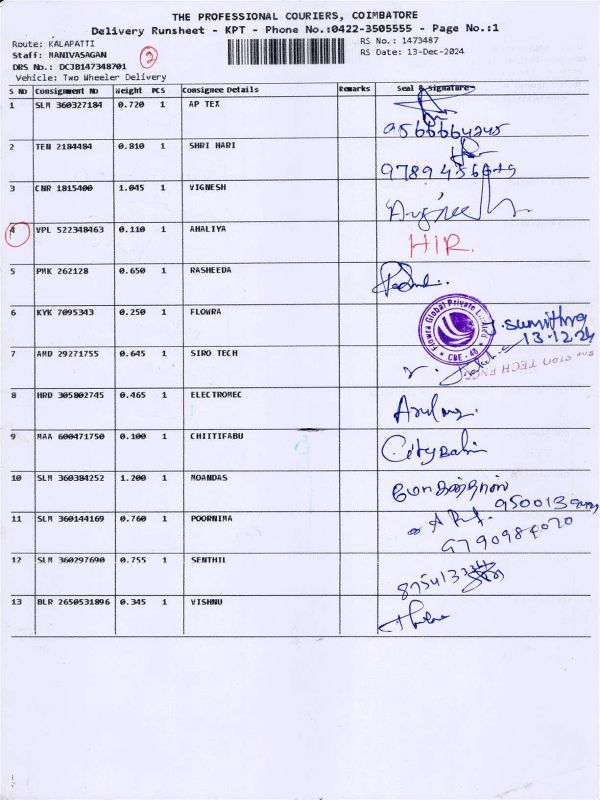 THE PROFESSIONAL COURIERS, COIMBATORE
Delivery Runsheet - KPT - Phone No.:0422-3505555 - Page No.:1
Route: KALAPATTI
2
RS No.: 1473487
Staff: MANIVASAGAN
RS Date: 13-Dec-2024
DRS No.: DC3B147348701
Vehicle: Two Wheeler Delivery
S No Consignment No Weight PCS Consignee Details Remarks Seal & signature
1 SLM 360327184 0.720 1 AP TEX
2 TEN 2184484 0.810 1 SHRI HARI
3 CNR 1815400 1.045 1 VIGNESH
4 VPL 522348463 0.110 1 AHALIYA HIR.
5 PMK 262128 0.650 1 RASHEEDA
6 KYK 7095343 0.250 1 FLOWRA Flowra Global Private Limited CBE - 48 J. Sumithra
13.12.24
7 AMD 29271755 0.645 1 SIRO TECH SIRO TECH ENGG
8 HRD 305802745 0.465 1 ELECTROMEC
9 MAA 600471750 0.100 1 CHIITIFABU
10 SLM 360384252 1.200 1 MOANDAS மோகன்தாஸ்
11 SLM 360144169 0.760 1 POORNIMA
12 SLM 360297690 0.755 1 SENTHIL
13 BLR 2650531896 0.345 1 VISHNU